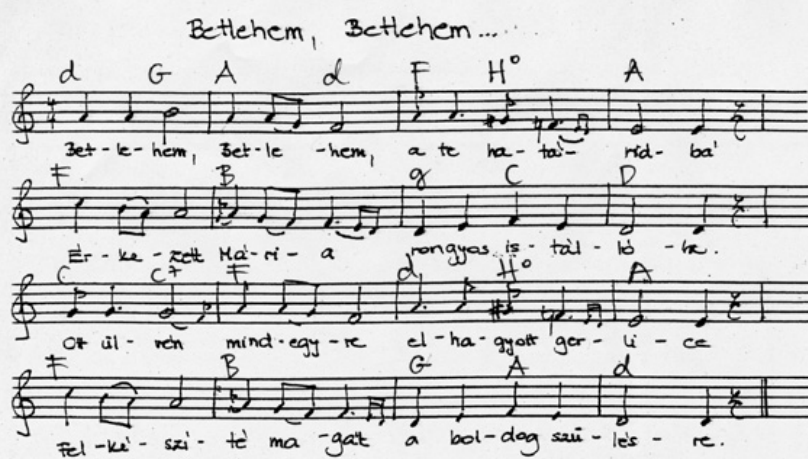 Betlehem, Betlehem...
d G A d F H° A
Bet-le-hem, Bet-le-hem, a te ha-tá-rid-ba'
F B g C D
Ér-ke-zett Má-ri-a rongyos is-tál-ló-ba.
C C7 F d H° A
Ott ül-ren mind-egy-re el-ha-gyott ger-li-ce
F B G A d
Fel-ké-szí-té ma-gát a bol-dog szü-lés-re.